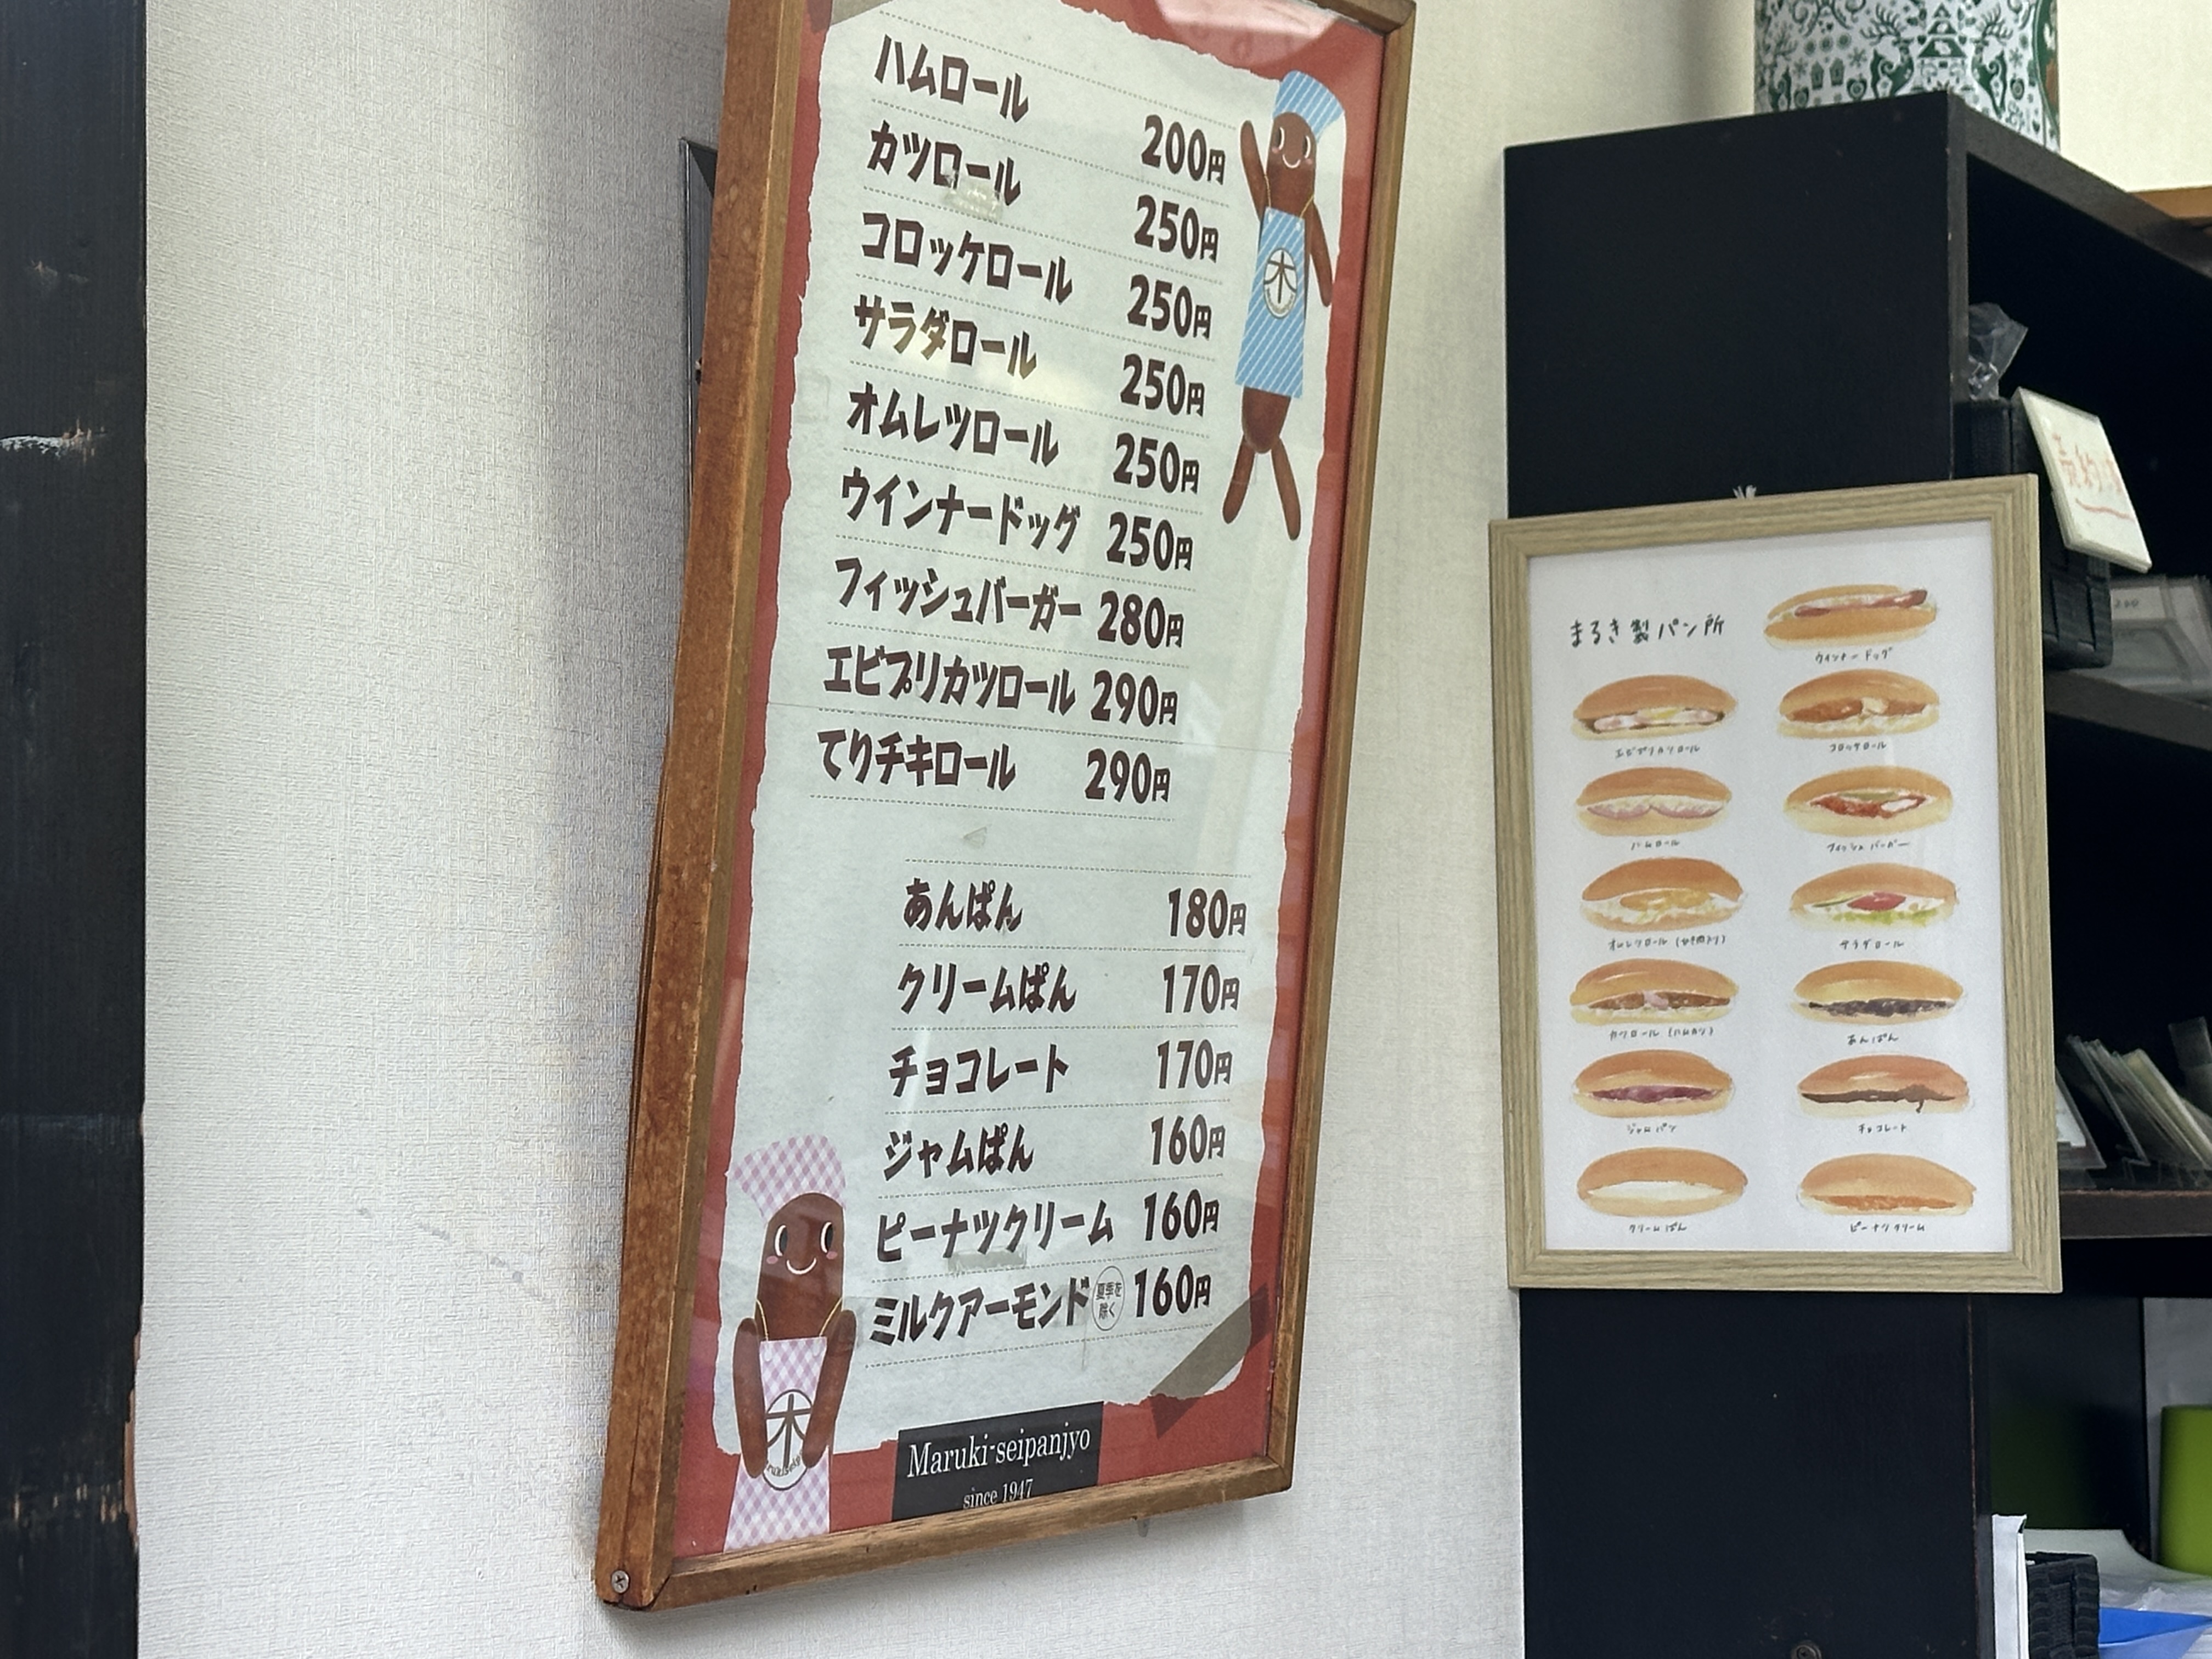 ハムロール 200円
カツロール 250円
コロッケロール 250円
サラダロール 250円
オムレツロール 250円
ウインナードッグ 250円
フィッシュバーガー 280円
エビプリカツロール 290円
てりチキロール 290円
あんぱん 180円
クリームぱん 170円
チョコレート 170円
ジャムぱん 160円
ピーナツクリーム 160円
ミルクアーモンド 夏季を除く 160円
木
木
Maruki-seipanjyo
since 1947
まるき製パン所
ウインナードッグ
エビプリカツロール
コロッケロール
ハムロール
フィッシュバーガー
オムレツロール
サラダロール
カツロール (ハムカツ)
あんぱん
ジャムパン
チョコレート
クリームぱん
ピーナツクリーム